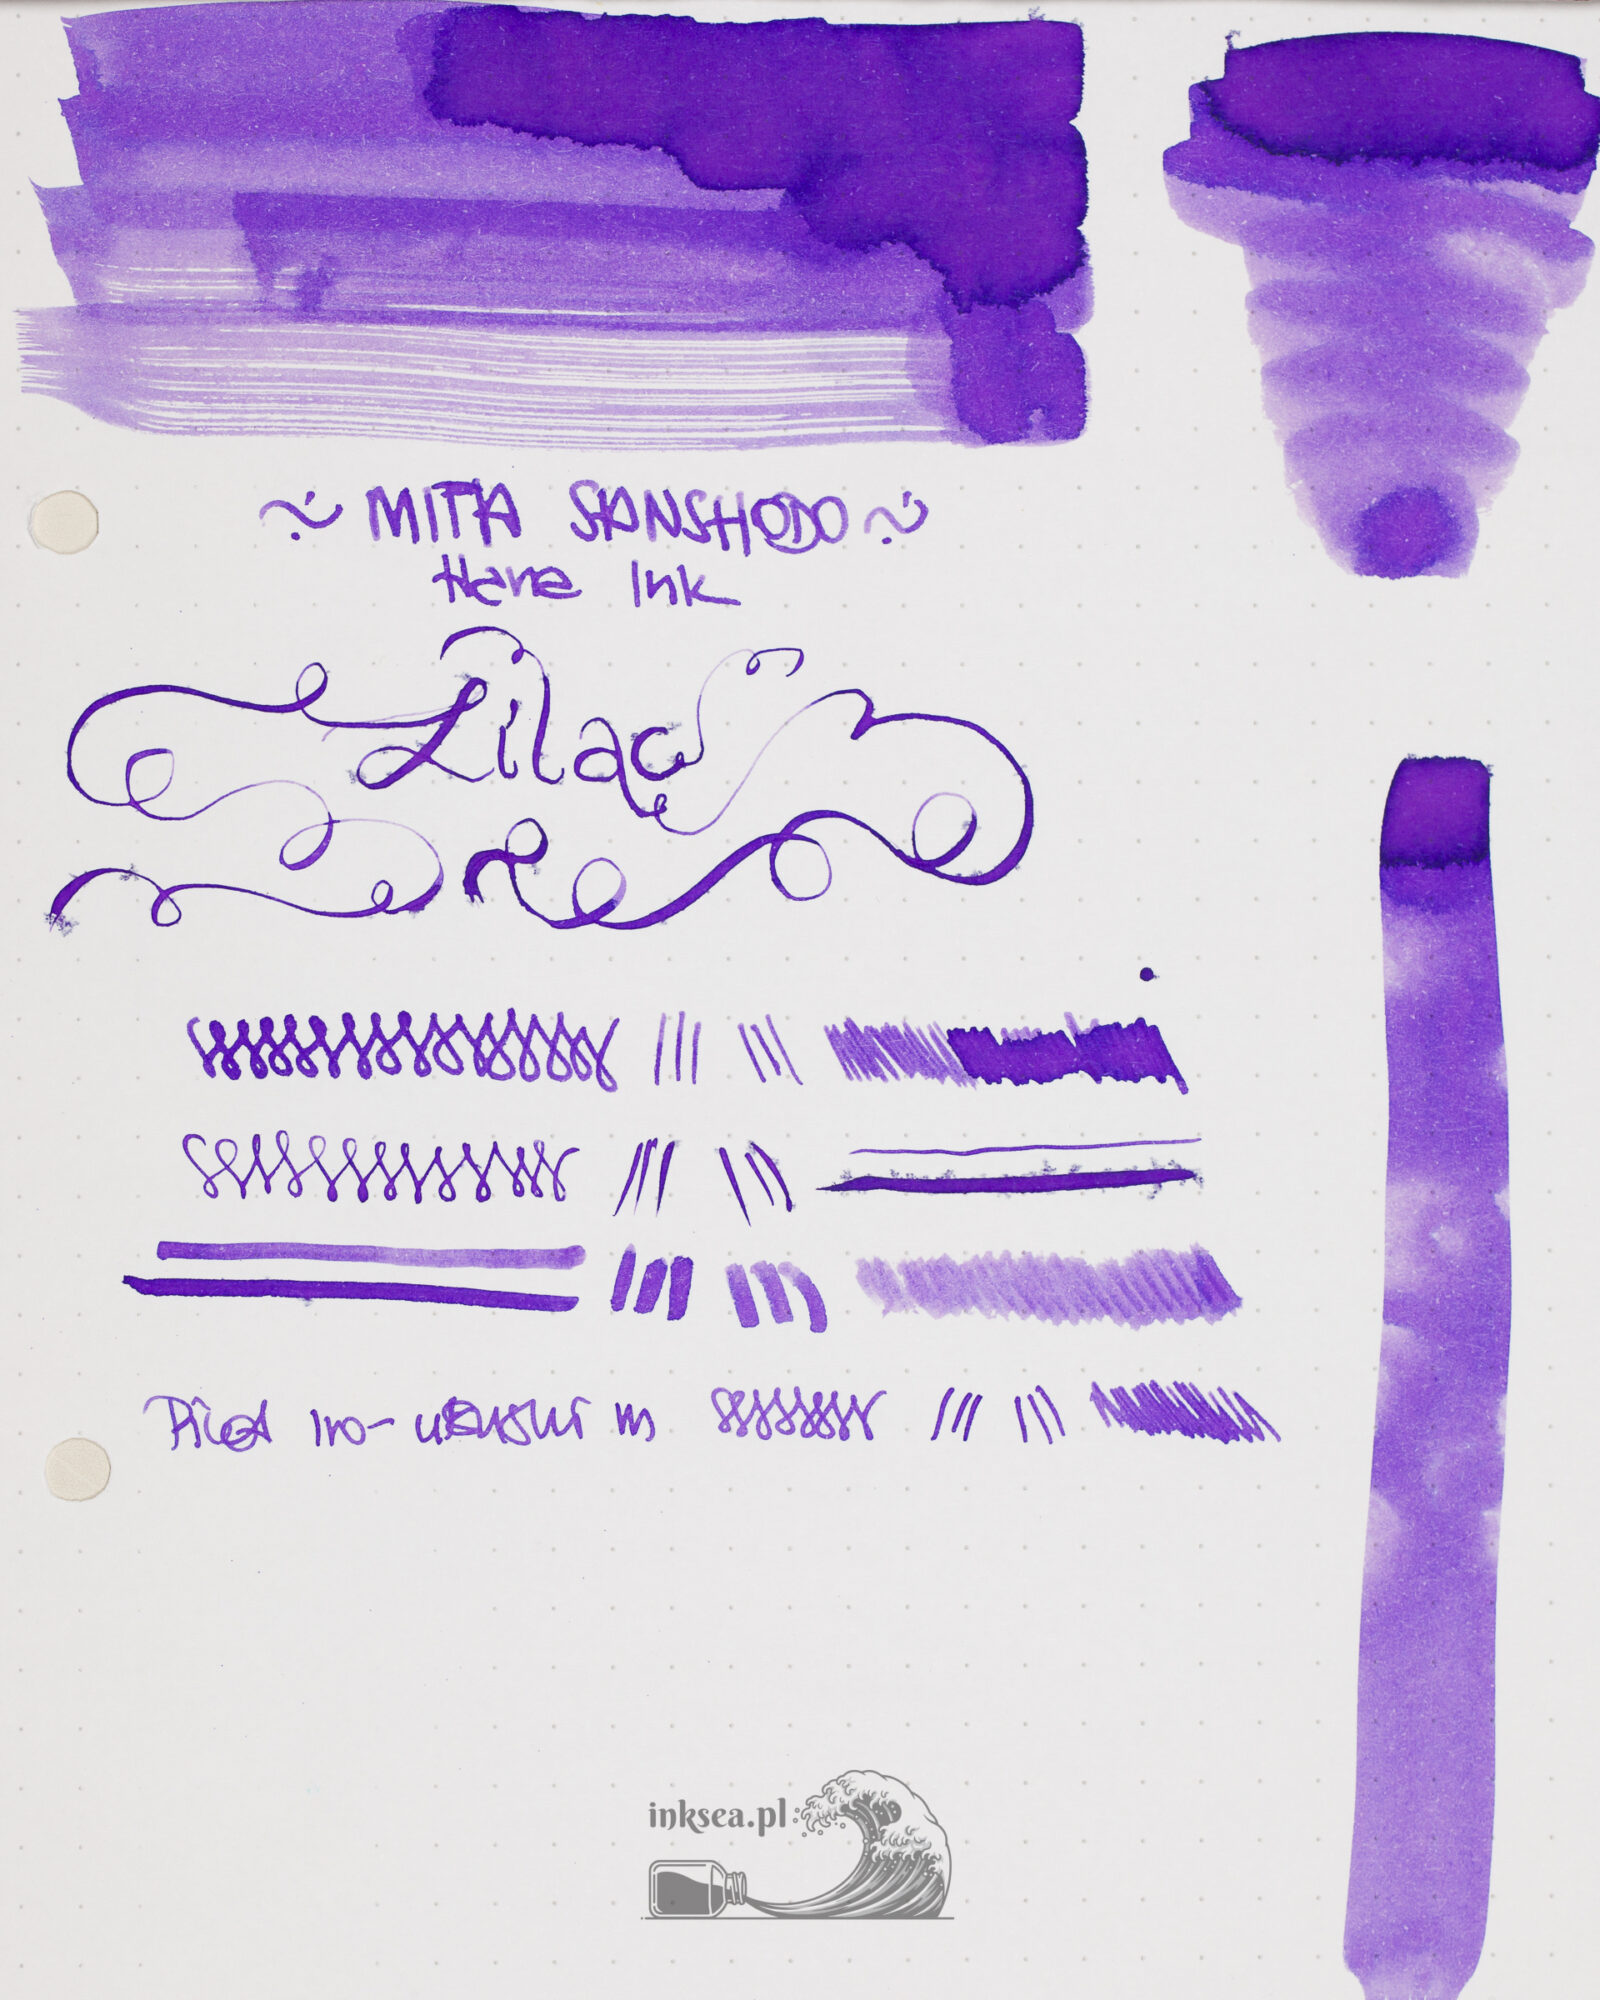 ~ MITA SANSHODO ~
Hana Ink
Lilac
Pilot iro-utsushi m
inksea.pl